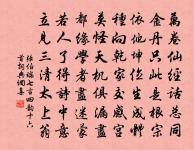 萬卷仙經語總同
金丹只此是根宗
依他坤位生成體
種向乾家交感宮
莫怪天機俱漏泄
都緣學者盡迷蒙
若人了得詩中意
立見三清太上翁
張伯端七言四韻十六
首